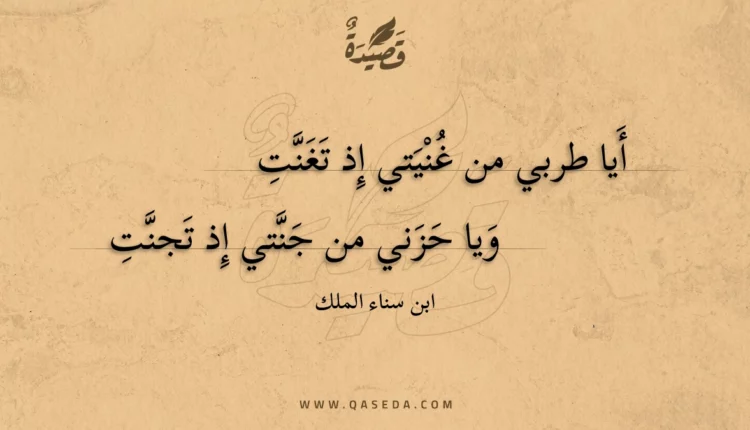 قَصِيْدَةٌ
أَيا طربي من غُنْيَتي إِذ تَغَنَّتِ
وَيا حَزَني من جَنَّتي إِذ تَجنَّتِ
ابن سناء الملك
WWW.QASEDA.COM